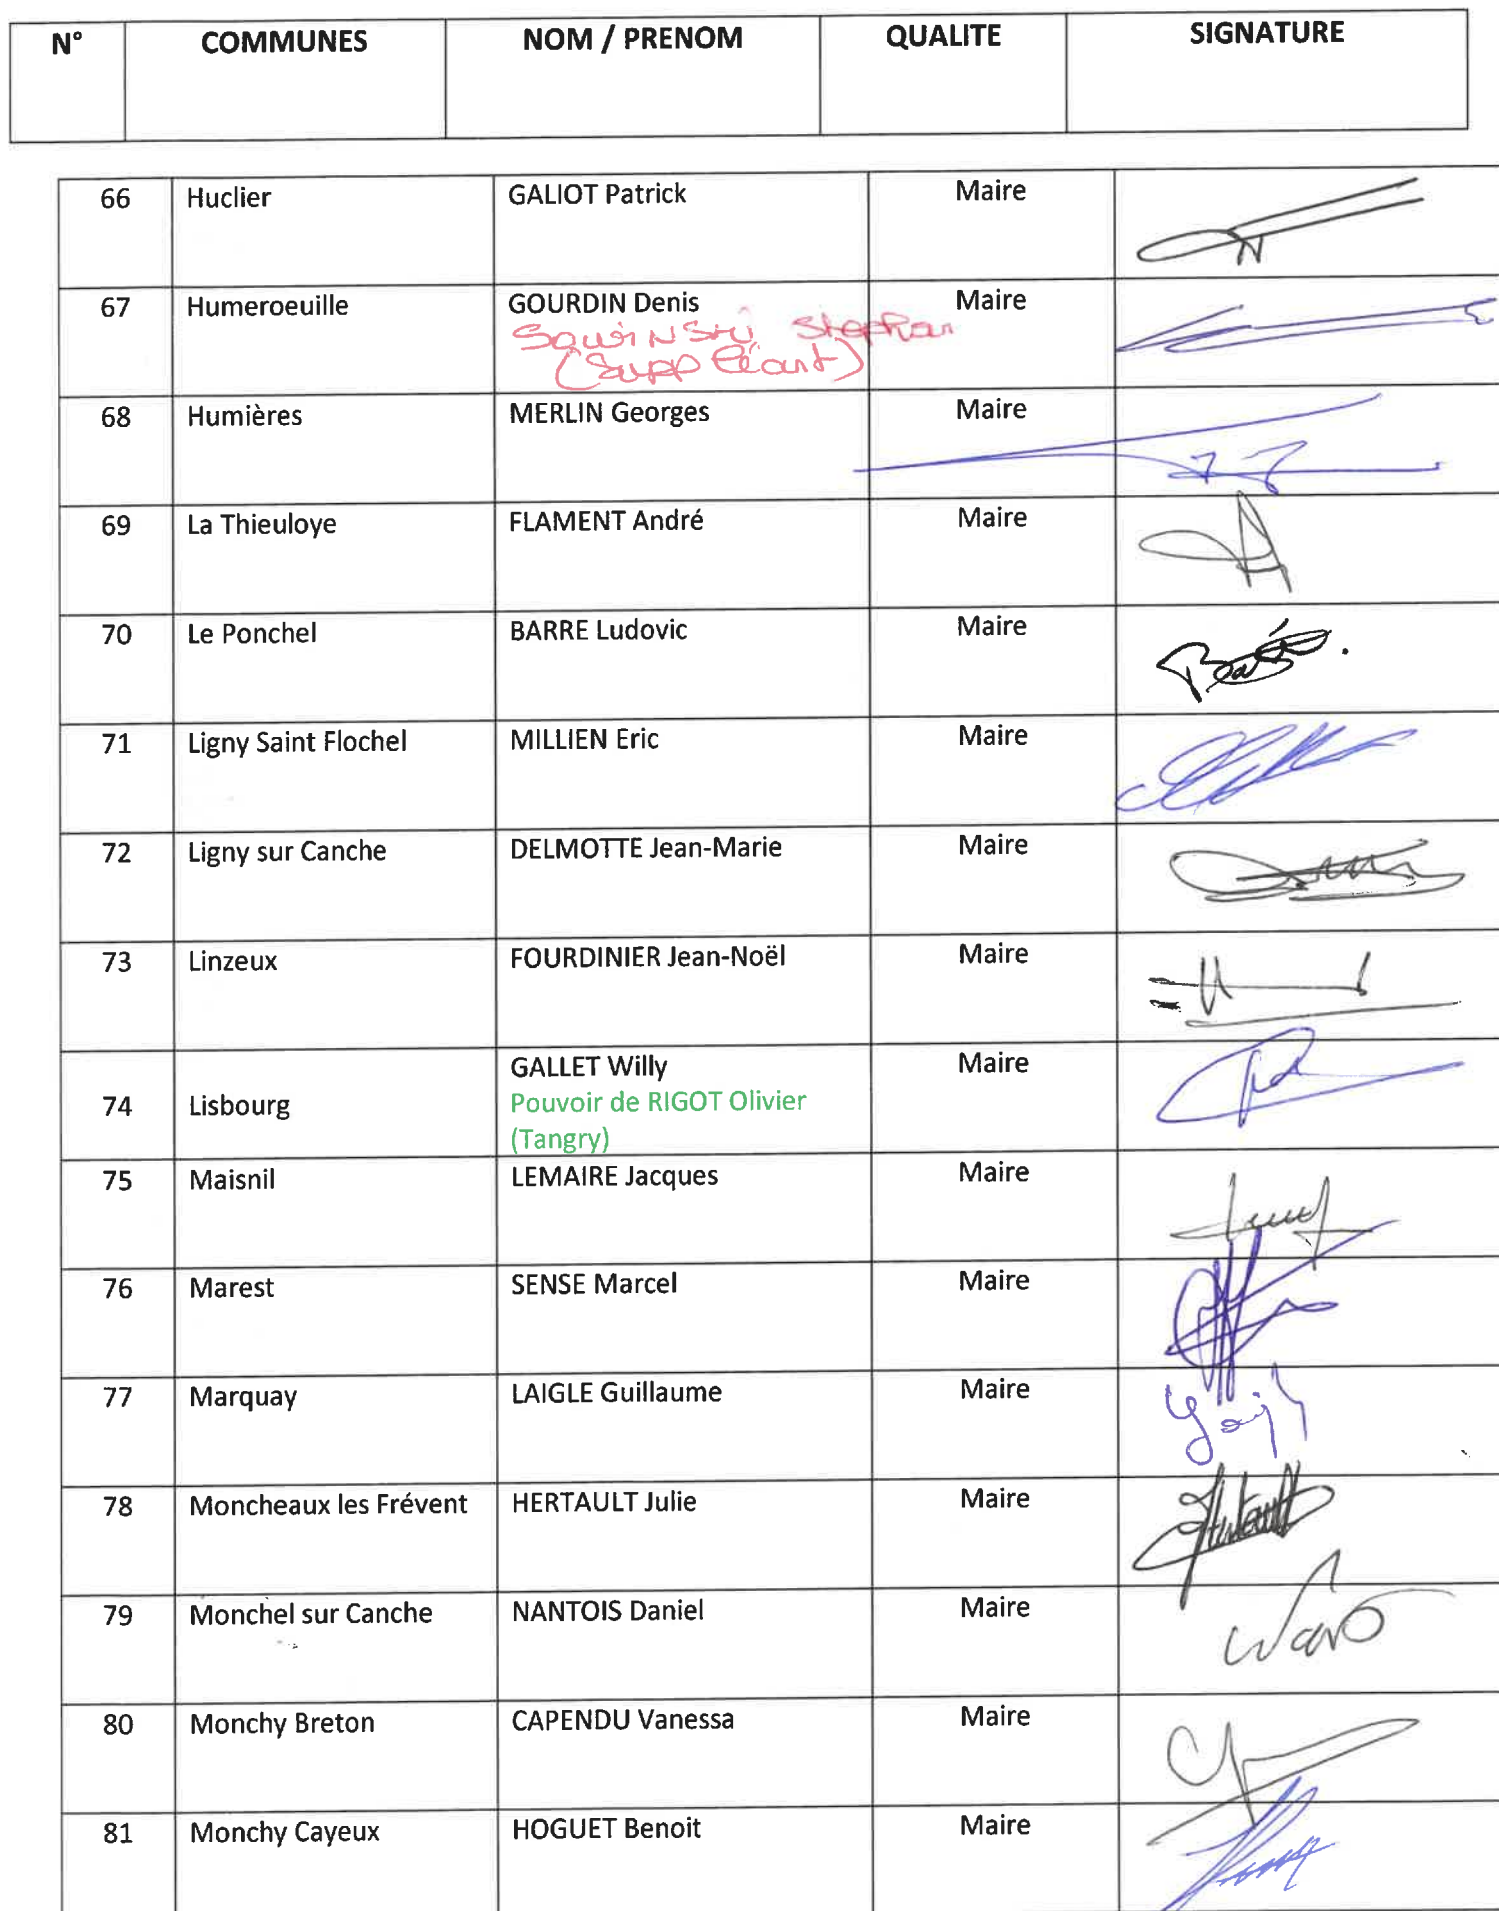 N° COMMUNES NOM / PRENOM QUALITE SIGNATURE
66 Huclier GALIOT Patrick Maire
67 Humeroeuille GOURDIN Denis Maire
Sawinski Stephan
(Suppléant)
68 Humières MERLIN Georges Maire
69 La Thieuloye FLAMENT André Maire
70 Le Ponchel BARRE Ludovic Maire
71 Ligny Saint Flochel MILLIEN Eric Maire
72 Ligny sur Canche DELMOTTE Jean-Marie Maire
73 Linzeux FOURDINIER Jean-Noël Maire
GALLET Willy Maire
74 Lisbourg Pouvoir de RIGOT Olivier
(Tangry)
75 Maisnil LEMAIRE Jacques Maire
76 Marest SENSE Marcel Maire
77 Marquay LAIGLE Guillaume Maire
78 Moncheaux les Frévent HERTAULT Julie Maire
79 Monchel sur Canche NANTOIS Daniel Maire
80 Monchy Breton CAPENDU Vanessa Maire
81 Monchy Cayeux HOGUET Benoit Maire